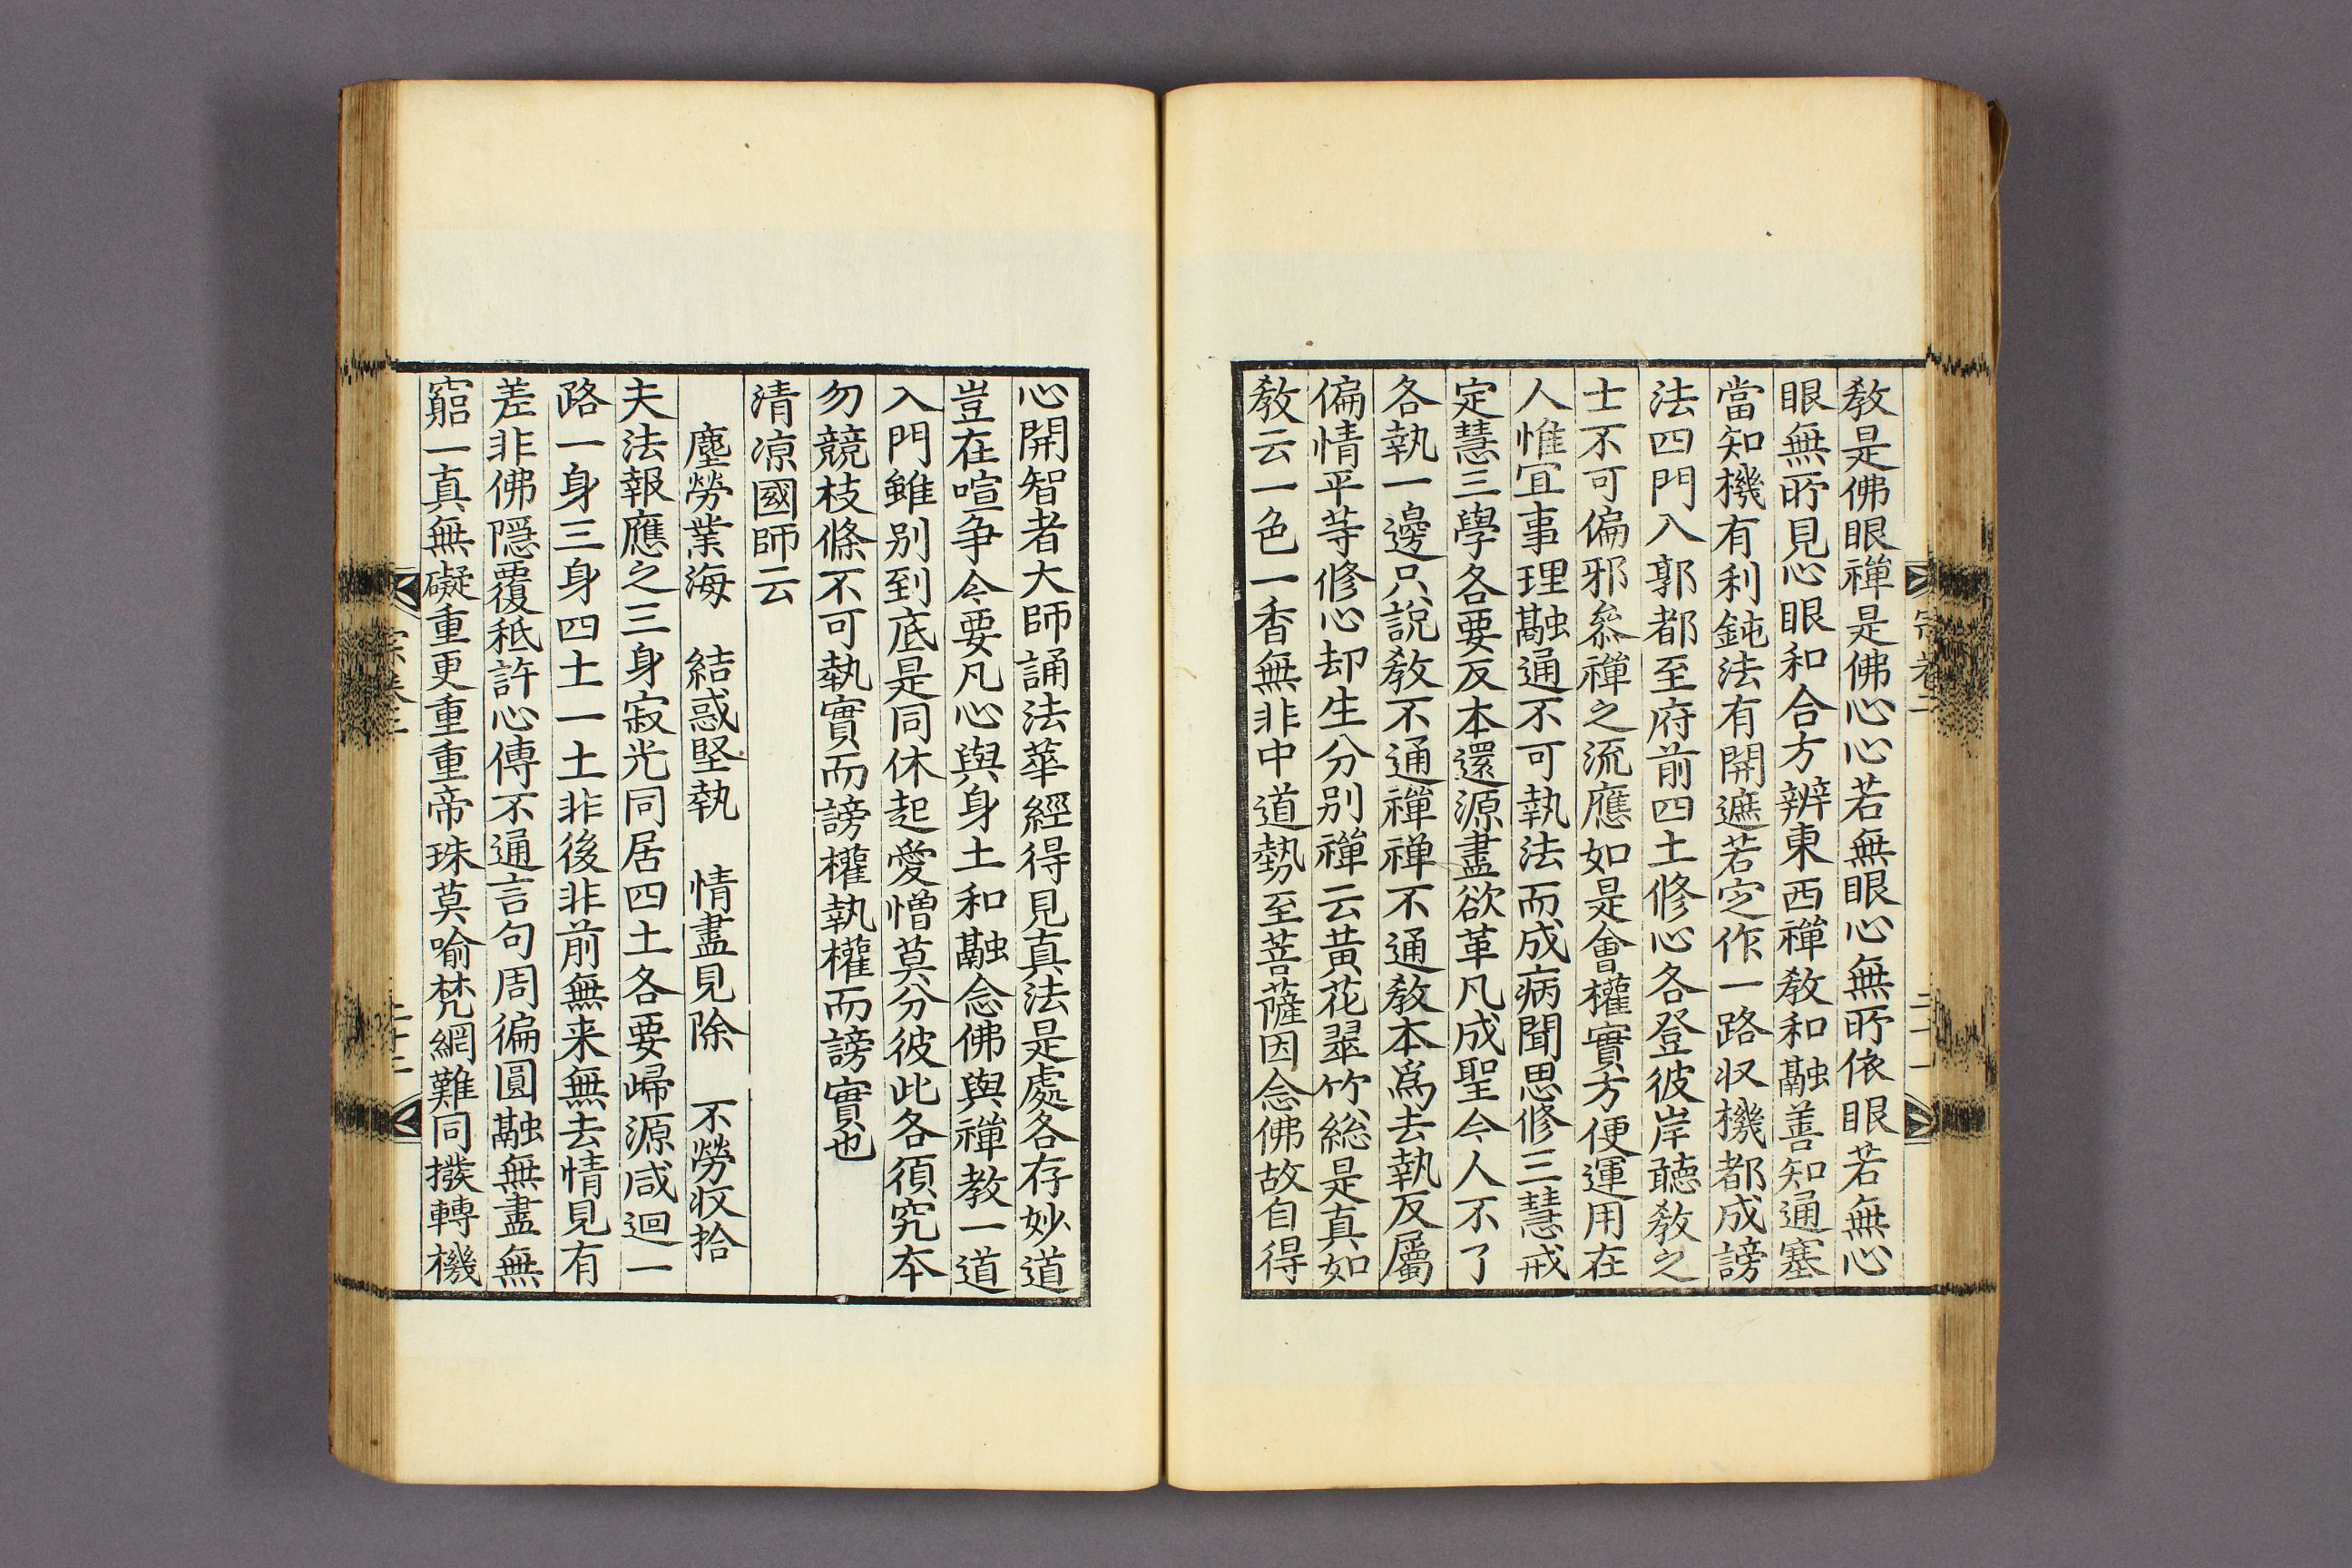 教是佛眼禪是佛心心若無眼心無所依眼若無心
眼無所見心眼和合方辨東西禪教和融善知通塞
當知機有利鈍法有開遮若定作一路収機都成謗
法四門入郭都至府前四土修心各登彼岸聽教之
士不可偏邪叅禪之流應如是會權實方便運用在
人惟宜事理融通不可執法而成病聞思修三慧戒
定慧三學各要反本還源盡欲革凡成聖今人不了
各執一邊只說教不通禪禅不通教本為去執反屬
偏情平等修心却生分别禪云黄花翠竹総是真如
教云一色一香無非中道勢至菩薩因念佛故自得
心開智者大師誦法華經得見真法是處各存妙道
豈在喧争今要凡心與身土和融念佛與禪教一道
入門雖别到底是同休起愛憎莫分彼此各須究本
勿競枝條不可執實而謗權執權而謗實也
清凉國師云
塵勞業海　結惑堅執　情盡見除　不勞収拾
夫法報應之三身寂光同居四土各要歸源咸迴一
路一身三身四土一土非後非前無来無去情見有
差非佛隱覆秪許心傳不通言句周徧圓融無盡無
窮一真無礙重更重重帝珠莫喻梵網難同撥轉機